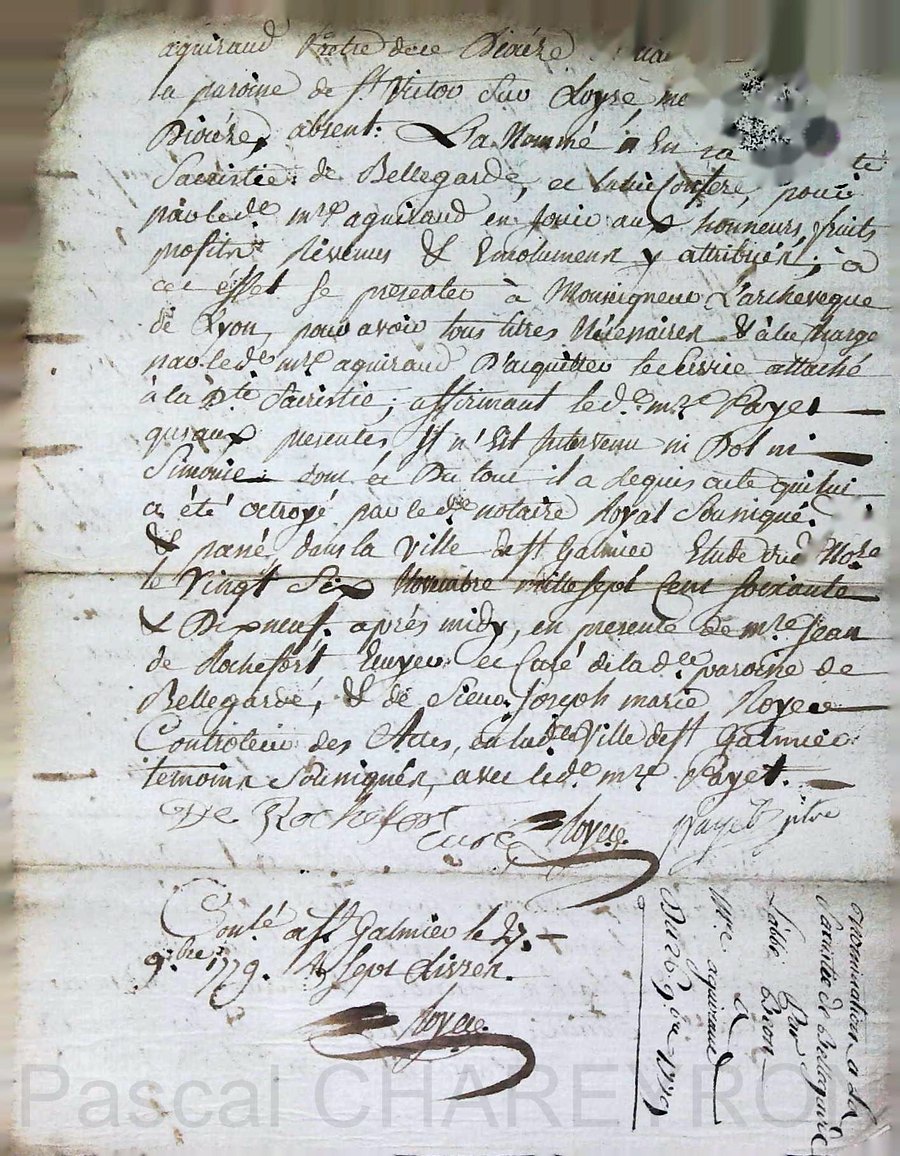 aguiraud Prêtre de ce Diocése
la paroisse de St Victor sur Loyre me
Diocése, absent. L'a Nommé à
Sacristie de Bellegarde, et la lui Confere, pour
par le dt mre aguiraud en jouir aux honneurs fruits
profits Revenus & Emolumens y attribués; a
cet éffet se presenter à Monseigneur L'archeveque
de Lyon, pour avoir tous titres Nécenaires & à la Charge
par le dt mre aguiraud D'acquitter le service attaché
à la Dte Sacristie; affirmant le dt mre Payet
qu'aux presentes Il n'est Intervenu ni Dol ni
Simonie dont & Du tout il a requis acte qui lui
a été octroyé par le dt notaire Royal Sousigné.
& passé dans la Ville de St Galmier Etude dud Note
le Vingt Six Novembre mille sept Cent soixante
& Dixneuf après midy, en presence de mre Jean
de Rochefort Ecuyer et Curé de la de paroisse de
Bellegarde, & de Sieur Joseph marie Royer
Controleur des Actes, en la de Ville de St Galmier
temoins Sousignés, avec le dt mre Payet.
De Rochefort curé Royer Payet ptre
Conlé a St Galmier le 27
9bre 1779. R Sept Livres.
Royer
Nomination a la
Sacristie de Bellegarde
Par
a
Mre aguiraud
Du 26 9bre 1779
Pascal CHAREYRON